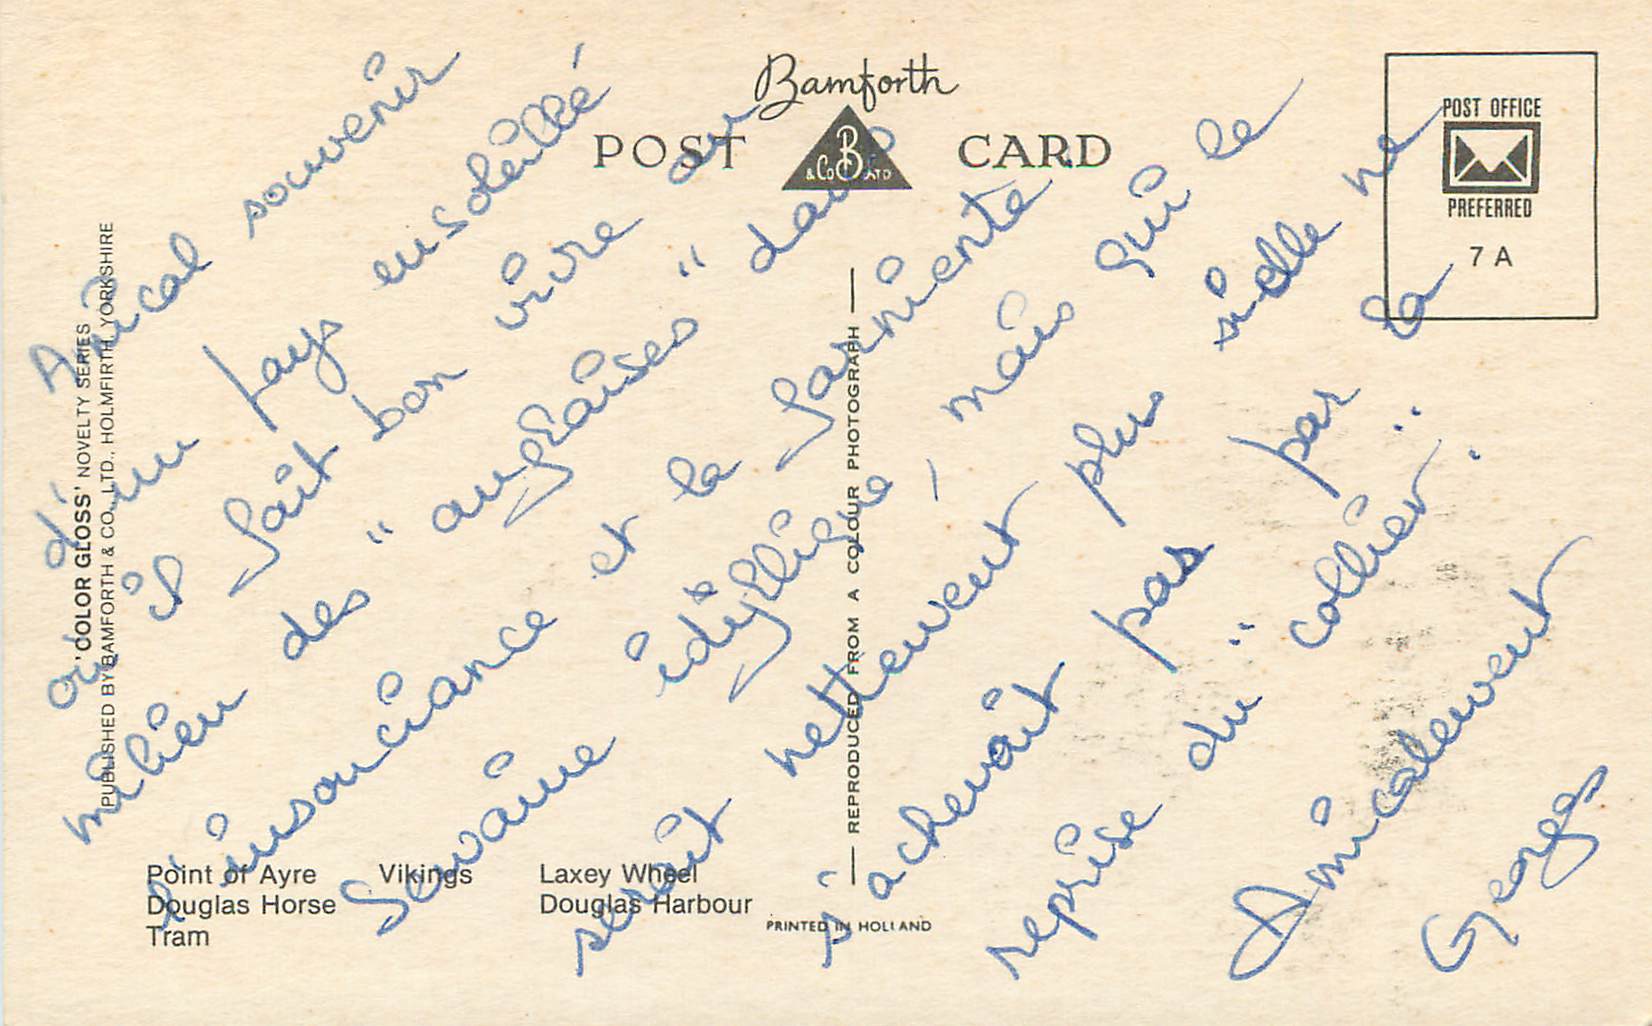 Bamforth
POST CARD
B
& Co LTD
POST OFFICE
PREFERRED
7 A
'COLOR GLOSS' NOVELTY SERIES
PUBLISHED BY BAMFORTH & CO., LTD., HOLMFIRTH, YORKSHIRE
Amical souvenir
d'un pays ensoleillé
où il fait bon vivre au
milieu des "anglaises" dans
l'insouciance et la farniente.
Semaine idyllique, mais qui le
serait nettement plus si elle ne
s'achevait pas par la
reprise du "collier".
Amicalement
Georges
REPRODUCED FROM A COLOUR PHOTOGRAPH
Point of Ayre Vikings Laxey Wheel
Douglas Horse Douglas Harbour
Tram
PRINTED IN HOLLAND